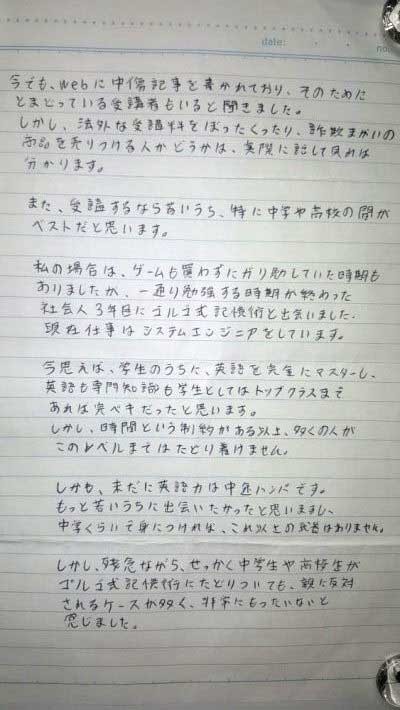 date:
no.
今でも、webに中傷記事を書かれており、そのために
とまどっている受講者もいると聞きました。
しかし、法外な受講料をぼったくったり、詐欺まがいの
商品を売りつける人かどうかは、実際に話してみれば
分かります。
また、受講するなら若いうち、特に中学や高校の間が
ベストだと思います。
私の場合は、ゲームも買わずにガリ勉していた時期も
ありましたが、一通り勉強する時期が終わった
社会人3年目にゴルゴ式記憶術と出会いました。
現在仕事はシステムエンジニアをしています。
今思えば、学生のうちに、英語を完全にマスターし、
英語も専門知識も学生としてはトップクラスまで
あれば完ペキだったと思います。
しかし、時間という制約がある以上、多くの人が
このレベルまではたどり着けません。
しかも、未だに英語力は中途ハンパです。
もっと若いうちに出会いたかったと思いますし、
中学くらいで身につければ、これ以上の武器はありません。
しかし、残念ながら、せっかく中学生や高校生が
ゴルゴ式記憶術にたどりついても、親に反対
されるケースが多く、非常にもったいないと
感じました。